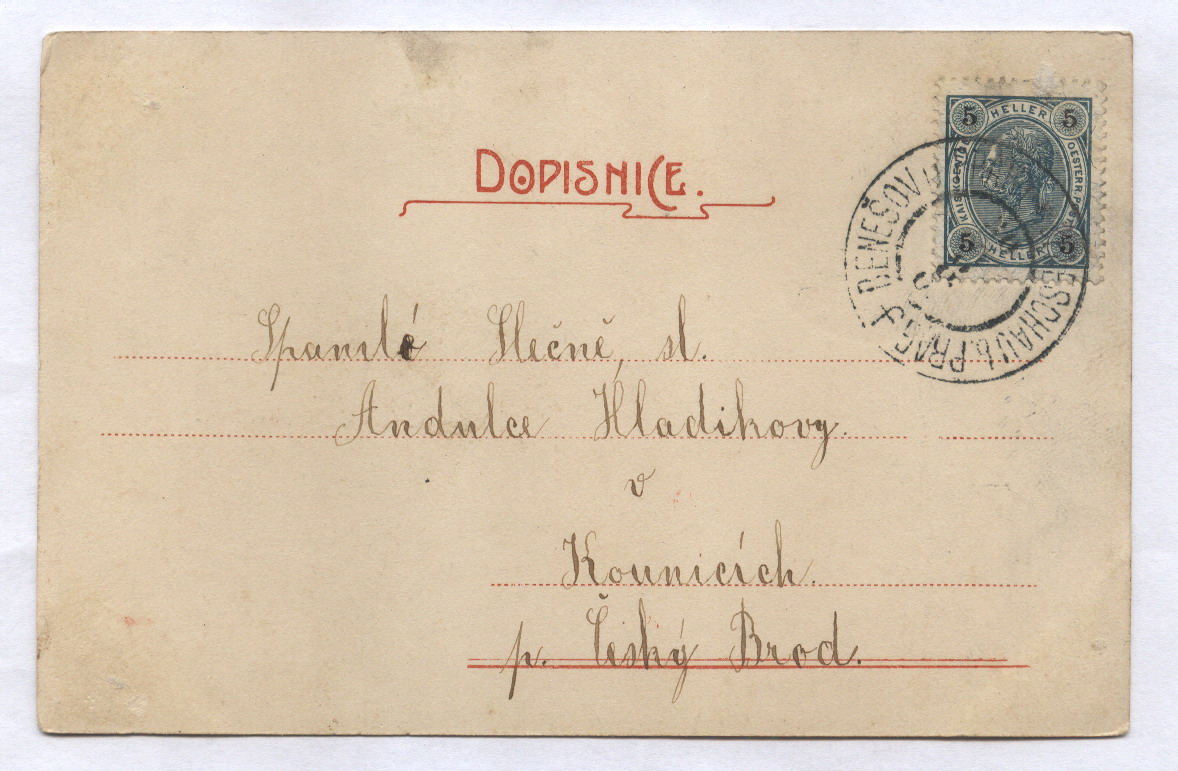 DOPISNICE.
5 HELLER 5
OESTERR. POST
5 HELLER 5
BENEŠOV
PRAG
Spanilé Slečně, sl.
Andulce Hladikovy.
v
Kounicích.
p. Český Brod.